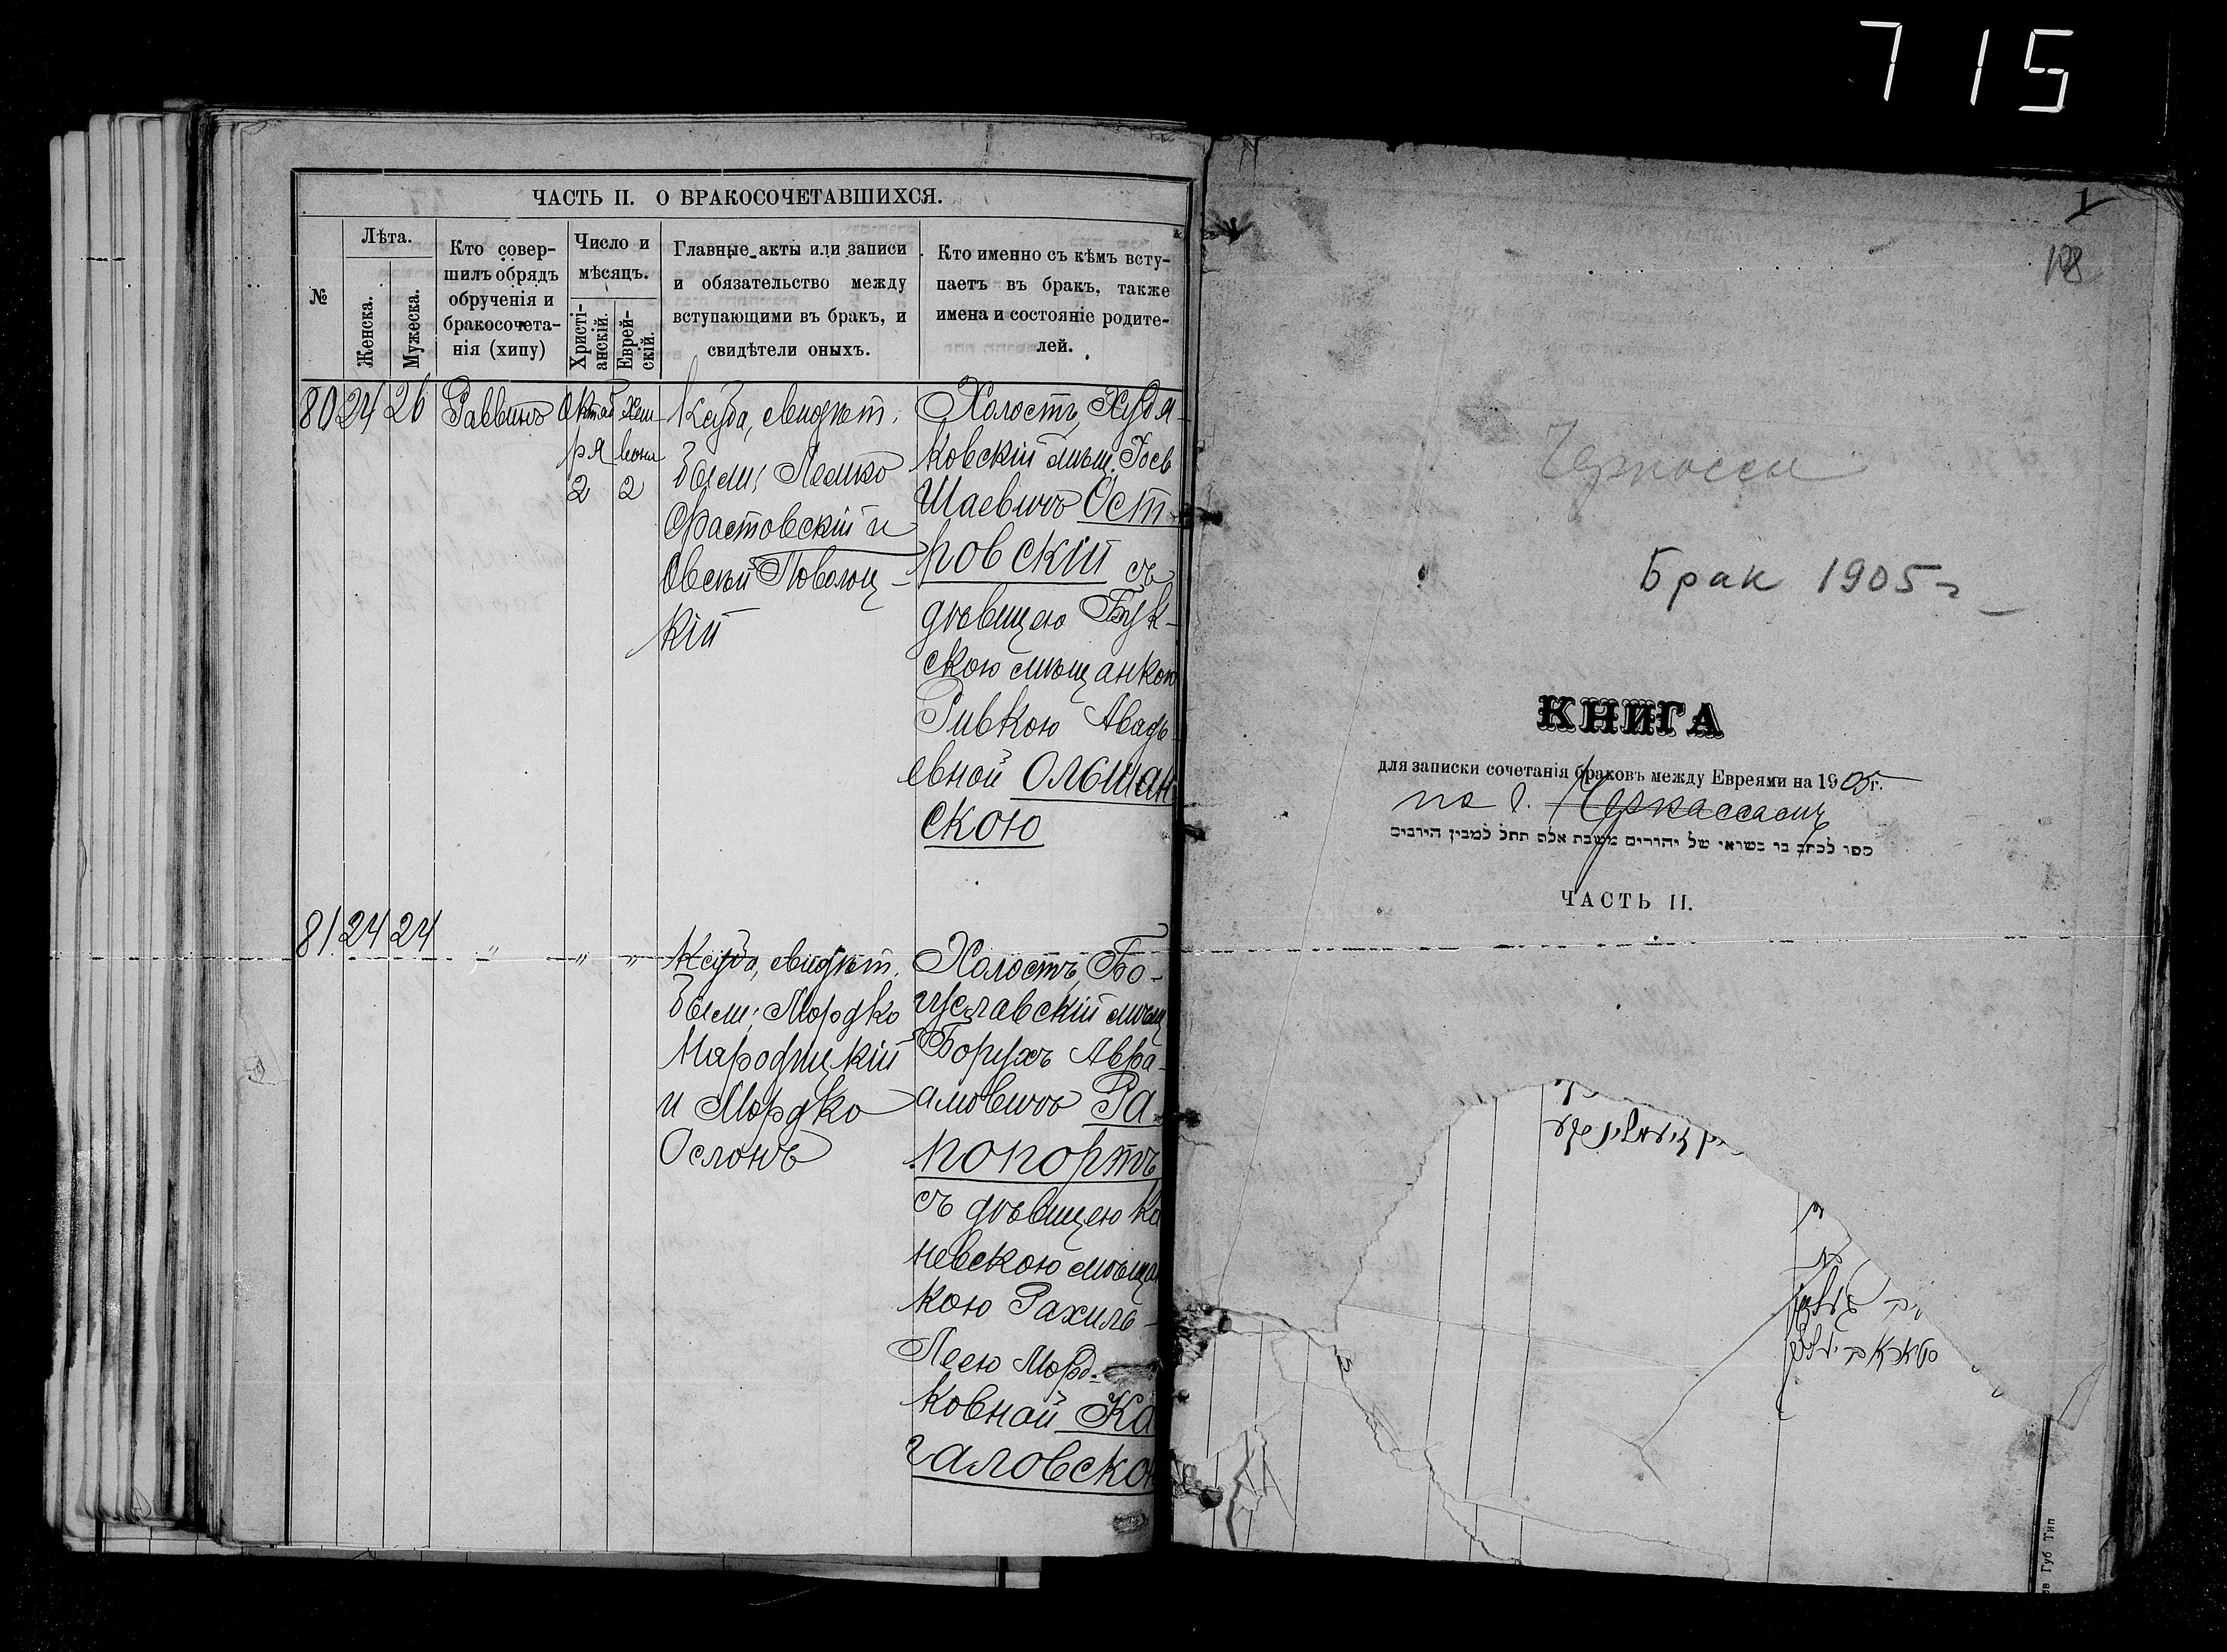 715
ЧАСТЬ II. О БРАКОСОЧЕТАВШИХСЯ.
№
Лѣта.
Женска.
Мужеска.
Кто совер-
шилъ обрядъ
обрученія и
бракосочета-
нія (хипу)
Число и
мѣсяцъ.
Христі-
анскій.
Еврей-
скій.
Главные акты или записи
и обязательство между
вступающими въ бракъ, и
свидѣтели оныхъ.
Кто именно съ кѣмъ всту-
паетъ въ бракъ, также
имена и состояніе родите-
лей.
80 24 26 Раввинъ
Октяб
ря
2
Хеш
вона
2
Ксуба, свидѣт.
были: Лейко
Фастовскій и
Овсей Поволоц-
кій
Холостъ, Худя-
ковскій мѣщ. Іось
Шаевичъ Ост-
ровскій съ
дѣвицею Бук-
скою мѣщанкою
Ривкою Авадь-
евной Ольшан-
скою
81 24 24 " " "
Ксуба, свидѣт.
были: Мордко
Народицкій
и Мордко
Ослонъ
Холостъ, Бо-
гуславскій мѣщ
Борухъ Авра-
амовичъ Ра-
попортъ
съ дѣвицею Ка
невскою мѣщан
кою Рахиль-
Леею Морд-
ковной Ка
галовскою
1
Черкассы
Брак 1905 г
КНИГА
для записки сочетанія браковъ между Евреями на 1905 г.
по г. Черкассамъ
ЧАСТЬ II.
Губ Тип